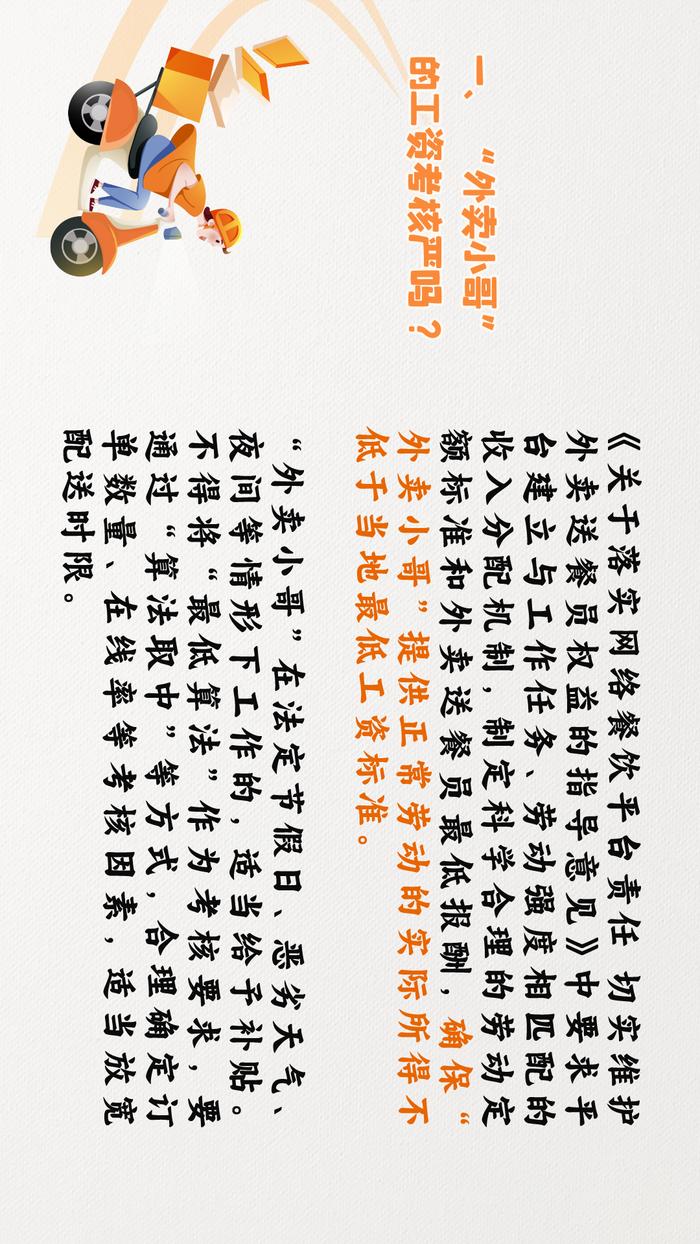 一、“外卖小哥”
的工资考核严吗？
《关于落实网络餐饮平台责任 切实维护
外卖送餐员权益的指导意见》中要求平
台建立与工作任务、劳动强度相匹配的
收入分配机制，制定科学合理的劳动定
额标准和外卖送餐员最低报酬，确保“
外卖小哥”提供正常劳动的实际所得不
低于当地最低工资标准。
“外卖小哥”在法定节假日、恶劣天气、
夜间等情形下工作的，适当给予补贴。
不得将“最低算法”作为考核要求，要
通过“算法取中”等方式，合理确定订
单数量、在线率等考核因素，适当放宽
配送时限。